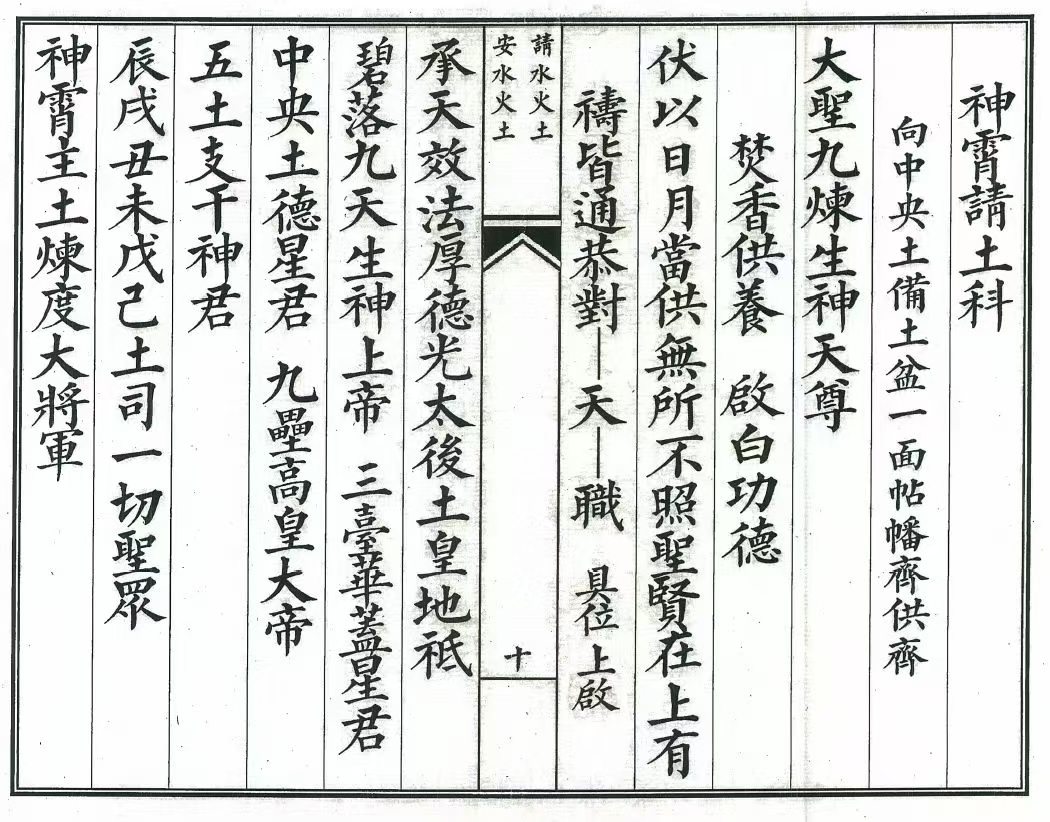 神霄請土科
向中央土備土盆一面帖幡齊供齊
大聖九煉生神天尊
焚香供養　啟白功德
伏以日月當供無所不照聖賢在上有
禱皆通恭對｜天｜職　具位上啟
請水火土
安水火土
十
承天效法厚德光太後土皇地祇
碧落九天生神上帝　三臺華蓋星君
中央土德星君　九壘高皇大帝
五土支干神君
辰戌丑未戊己土司一切聖眾
神霄主土煉度大將軍